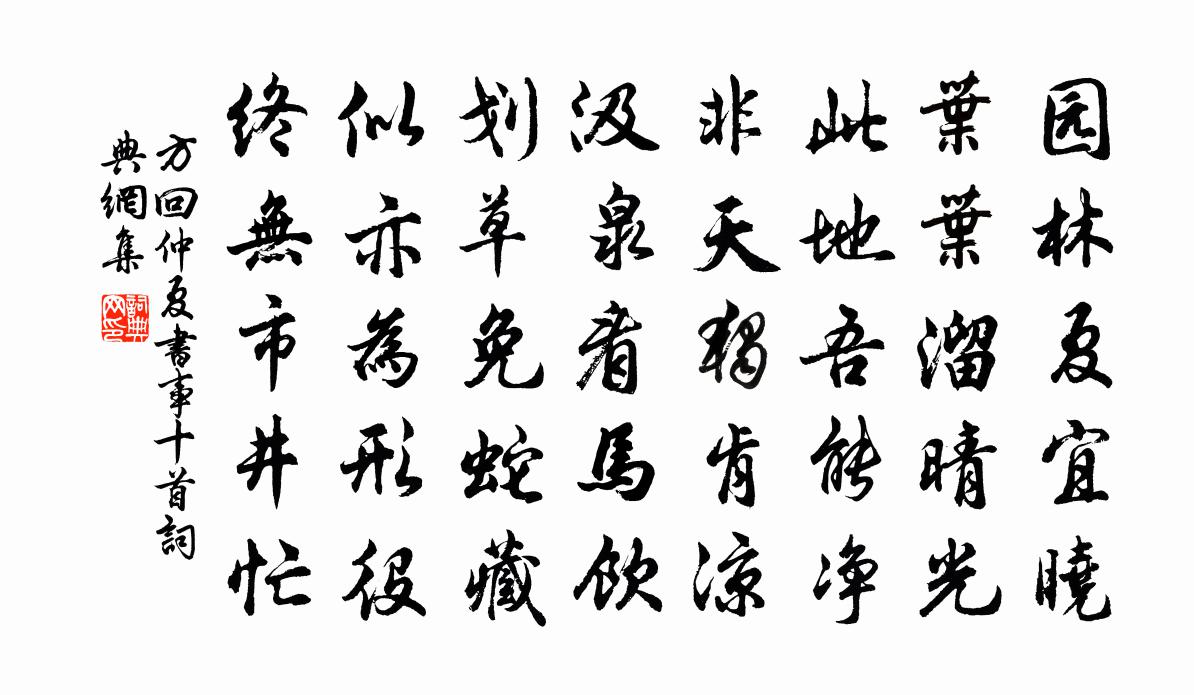 园林夏宜曉
葉葉溜晴光
此地吾能净
非天獨肯凉
汲泉看馬飲
划草免蛇藏
似亦為形役
終無市井忙
方回仲夏書事十首詞
典網集
詞典
网印